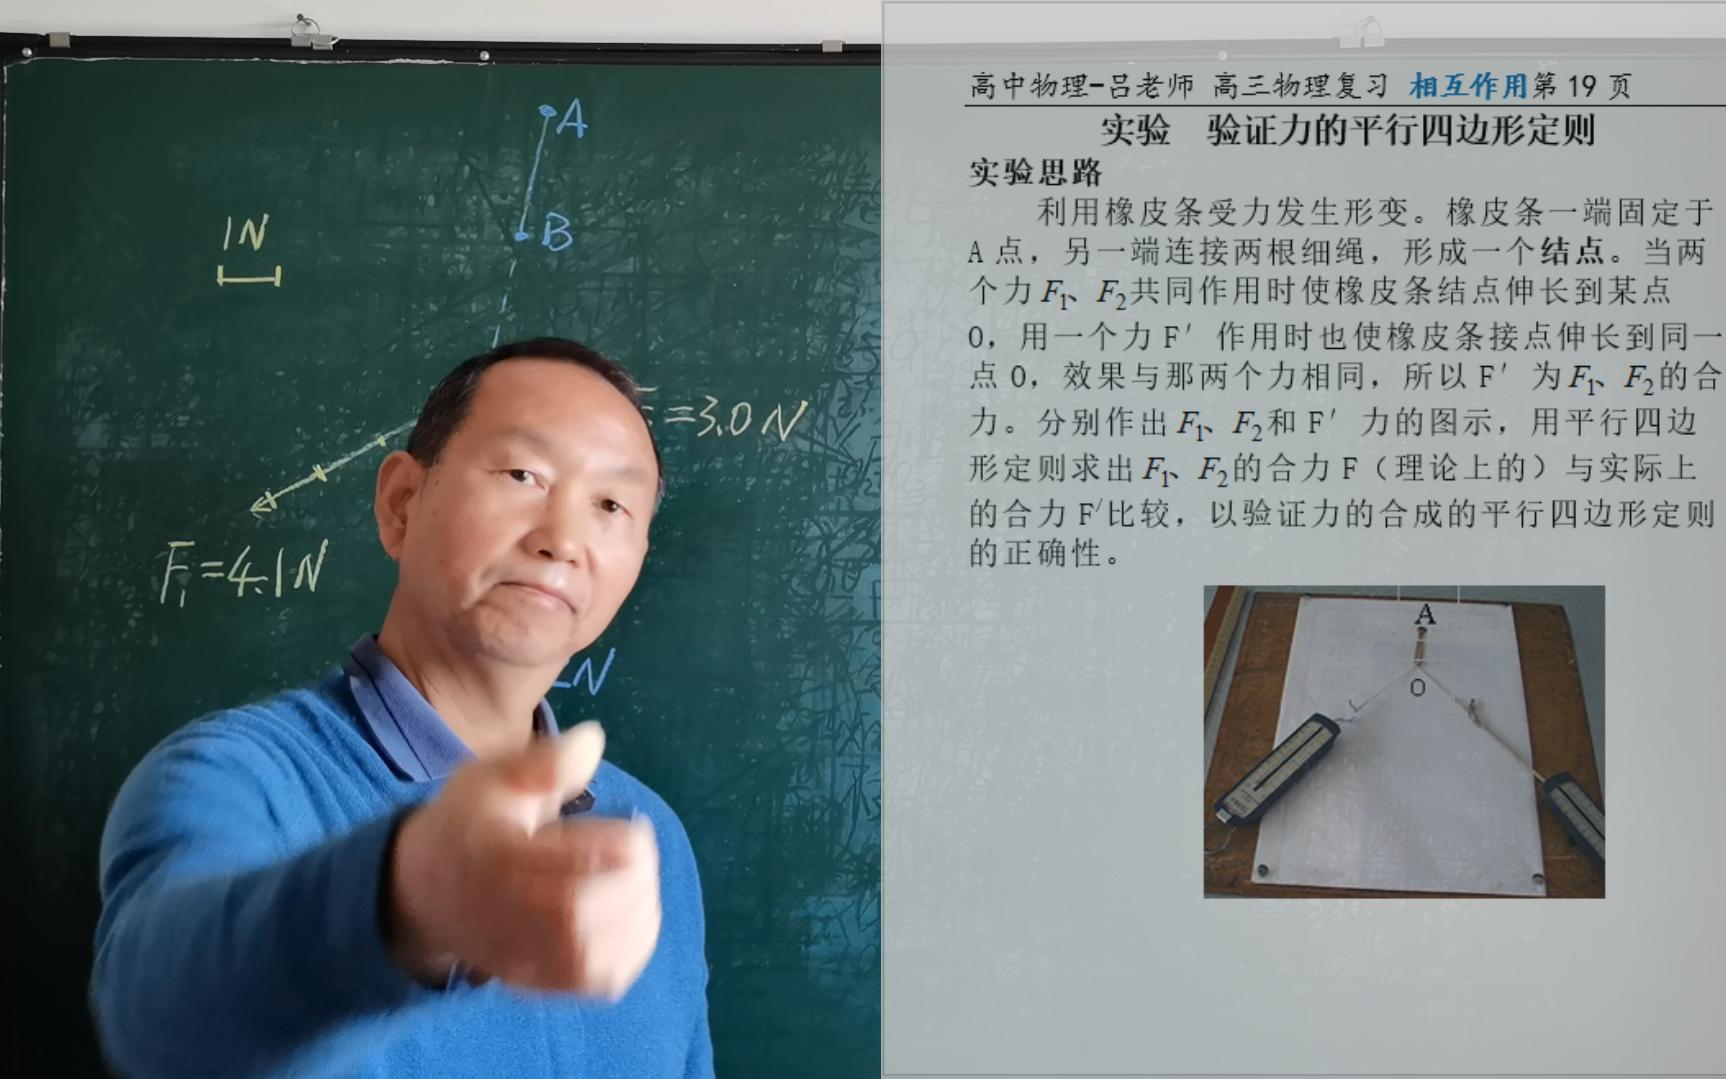 A
B
1N
=3.0N
F₁=4.1N
N
高中物理-吕老师 高三物理复习 相互作用第 19 页
实验 验证力的平行四边形定则
实验思路
利用橡皮条受力发生形变。橡皮条一端固定于
A 点，另一端连接两根细绳，形成一个结点。当两
个力 F₁、F₂共同作用时使橡皮条结点伸长到某点
O，用一个力 F′ 作用时也使橡皮条接点伸长到同一
点 O，效果与那两个力相同，所以 F′ 为 F₁、F₂的合
力。分别作出 F₁、F₂和 F′ 力的图示，用平行四边
形定则求出 F₁、F₂的合力 F（理论上的）与实际上
的合力 F′比较，以验证力的合成的平行四边形定则
的正确性。
A
O